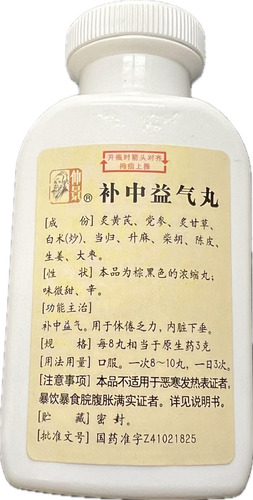 开瓶时箭头对齐
拇指上推
仲景® 补中益气丸
[成 份] 炙黄芪、党参、炙甘草、
白术(炒)、当归、升麻、柴胡、陈皮、
生姜、大枣。
[性 状] 本品为棕黑色的浓缩丸;
味微甜、辛。
[功能主治]
补中益气。用于体倦乏力,内脏下垂。
[规 格] 每8丸相当于原生药3克
[用法用量] 口服。一次8~10丸,一日3次。
[注意事项] 本品不适用于恶寒发热表证者,
暴饮暴食脘腹胀满实证者。详见说明书。
[贮 藏] 密 封。
[批准文号] 国药准字Z41021825